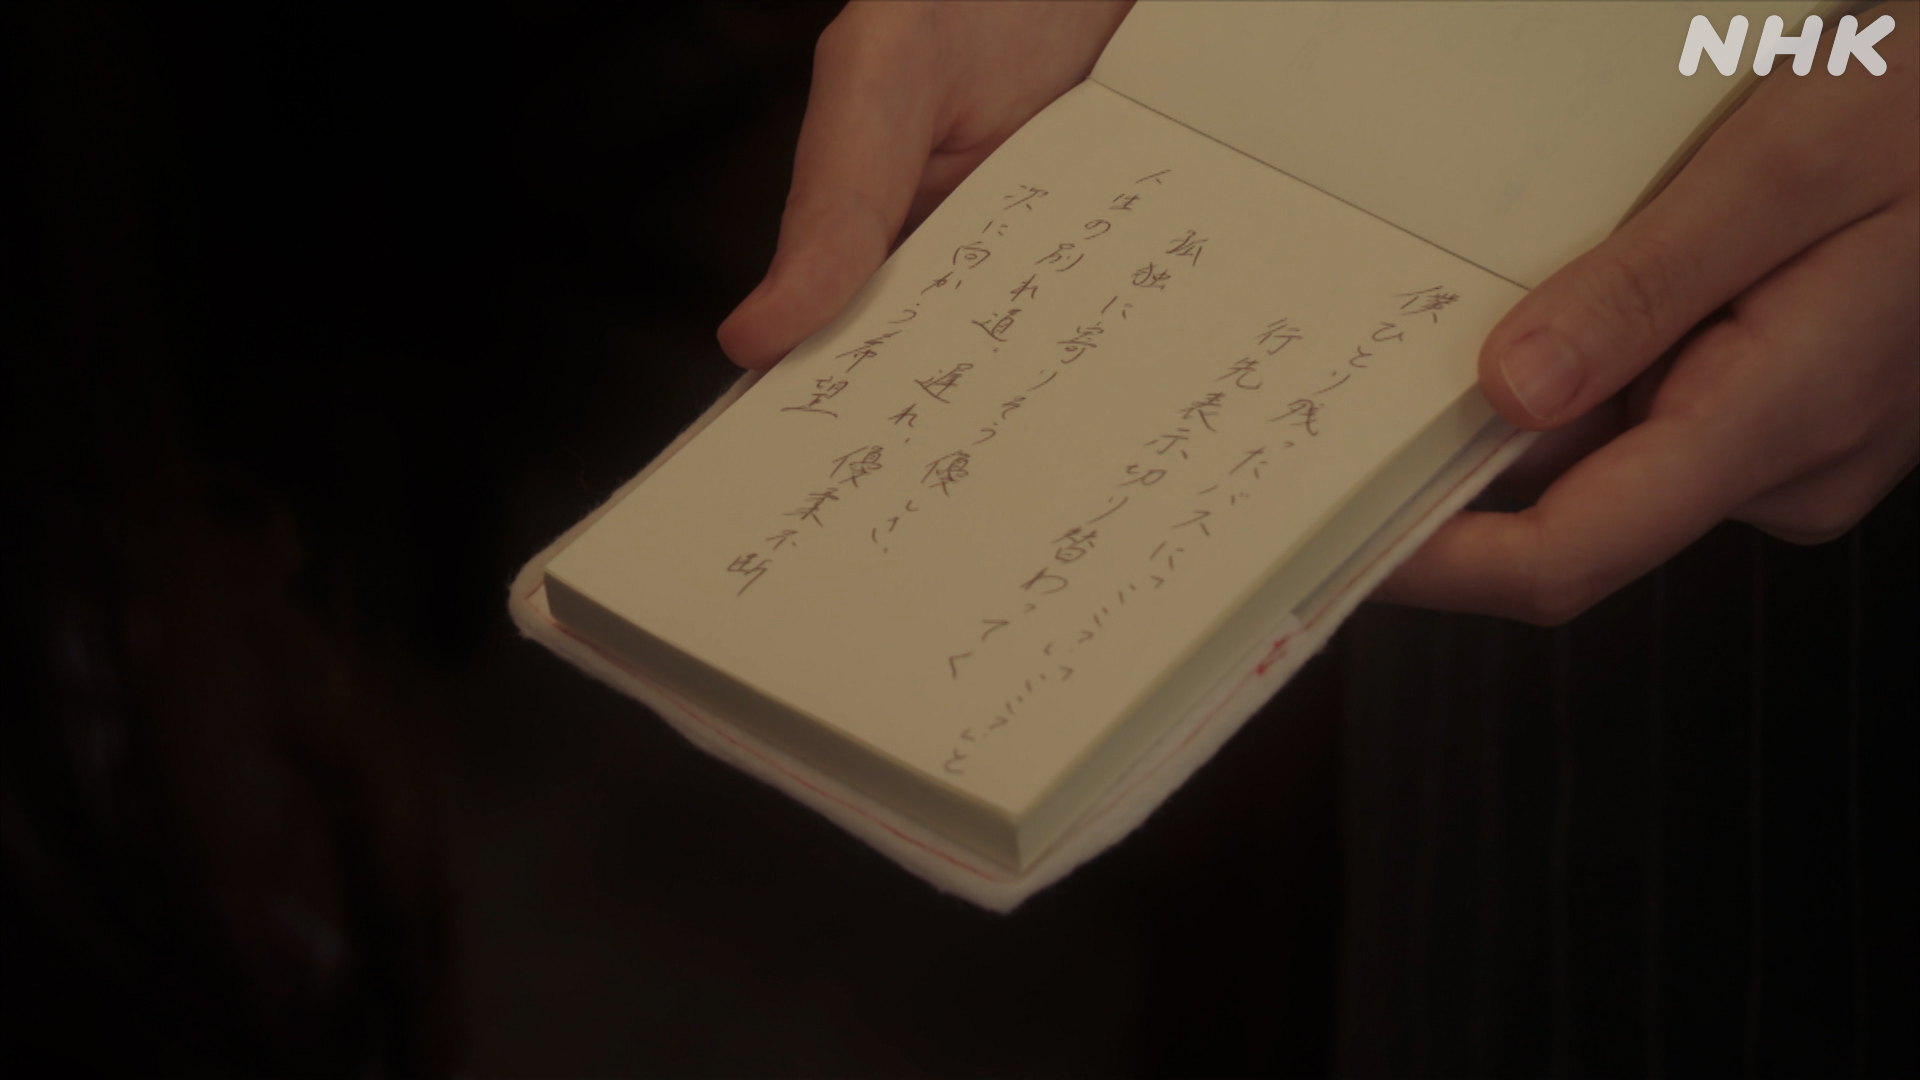 NHK
僕ひとり残ったバスに
行先表示切り替わってく
孤独に寄りそう優しさ、
人生の別れ道、遅れ、優柔不断
次に向かう希望